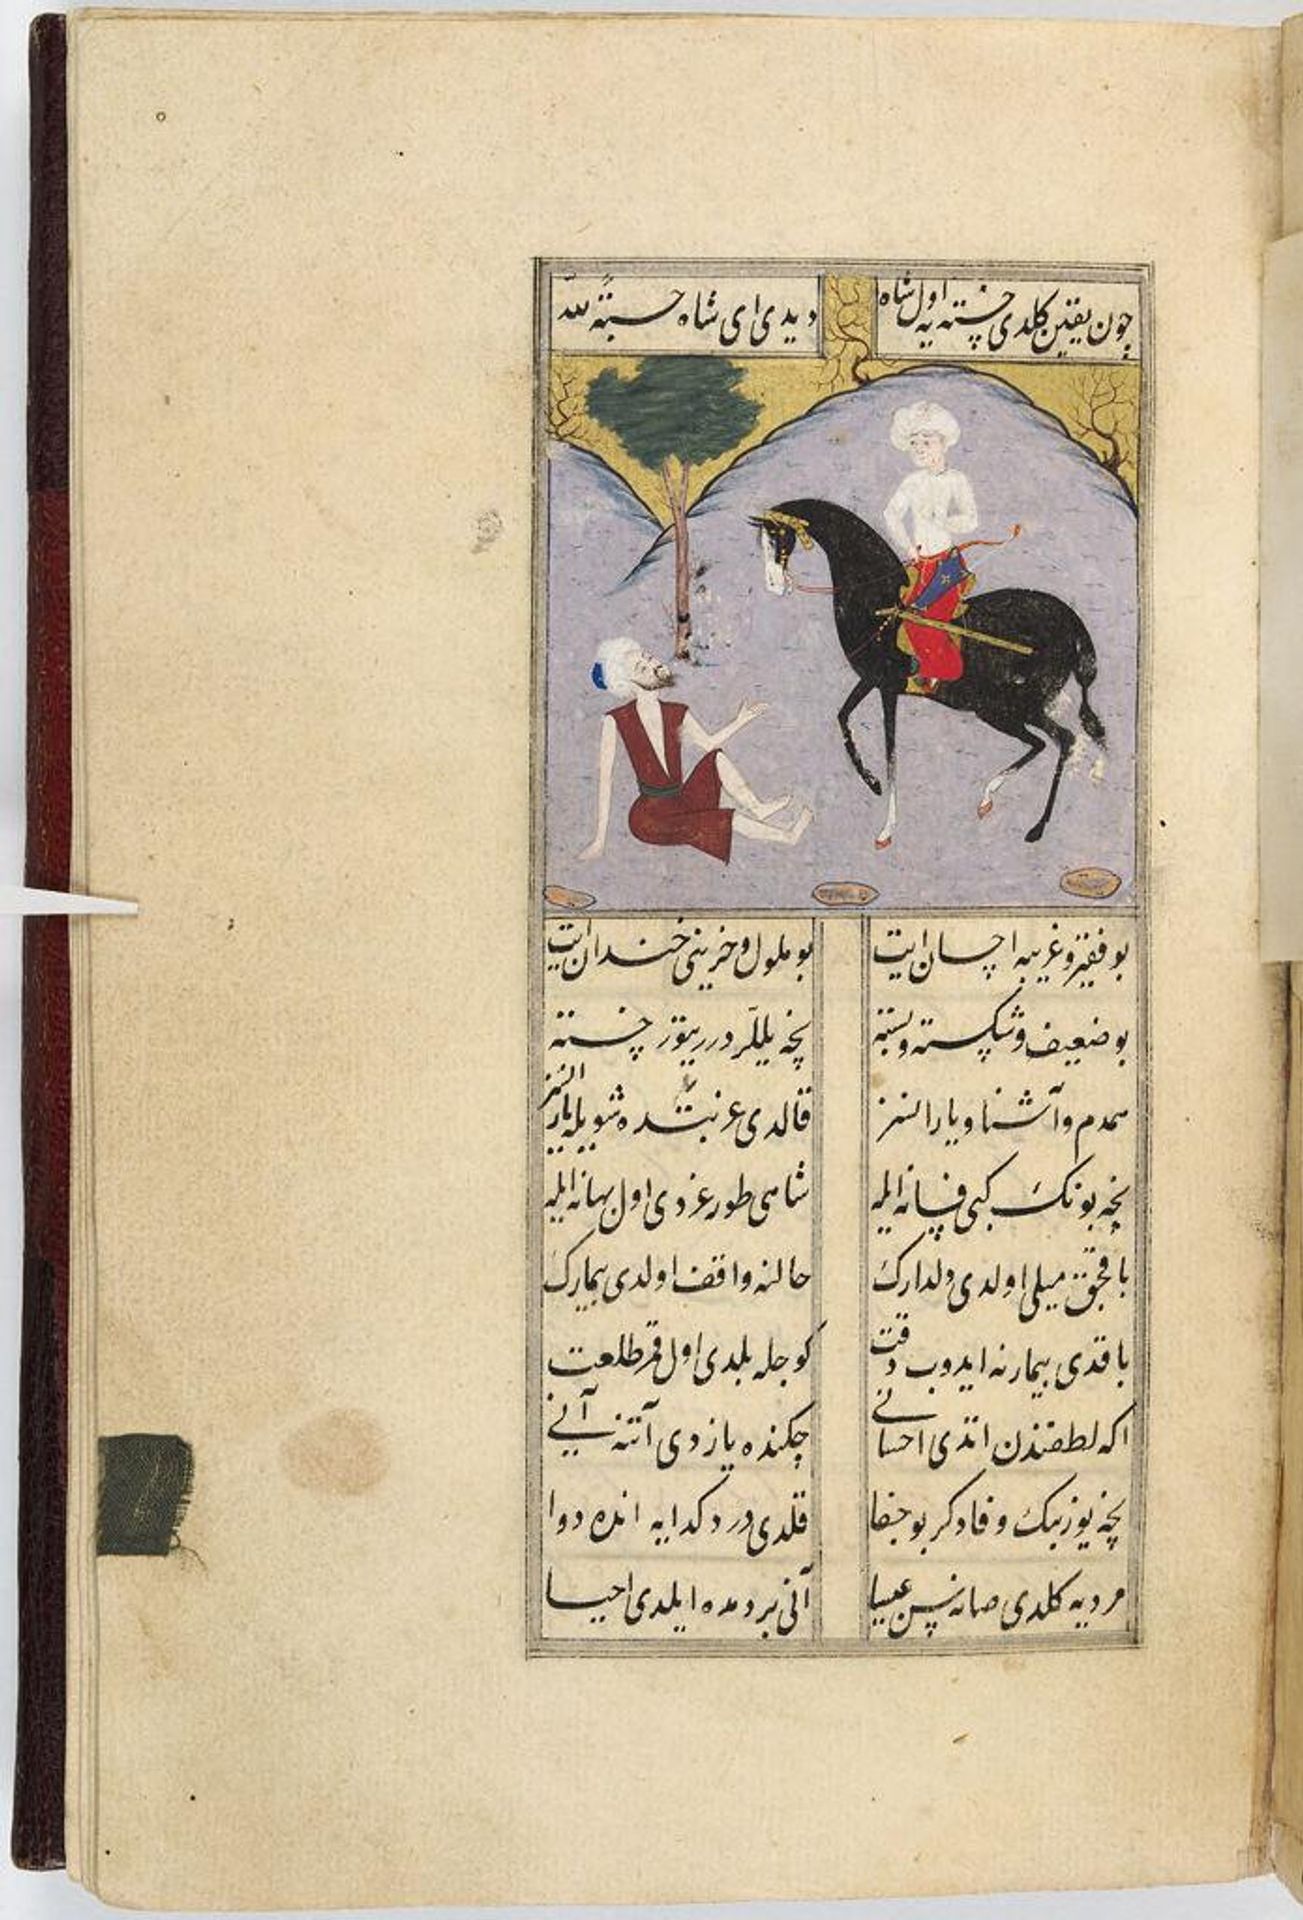 چون یقین کلدی خسته یه اول شاه
دیدی ای شاه حسبة لله
بو فقیر و غریبه احسان ایت
بو ملول و حزینی خندان ایت
بو ضعیف و شکسته و بسته
نچه ییللر در یتور خسته
همدم و آشنا و یار السز
قالدی غربتده شویله یار السز
نچه بونک کبی فسانه ایله
شاهی طورغزدی اول بهانه ایله
باقجق میلی اولدی دلدارک
حالنه واقف اولدی بیمارک
باقدی بیمارنه ایدوب دقت
کوجله بلدی اول قمر طلعت
اکه لطفندن اتدی احسانی
چکنده یازدی آتنه آنی
نچه یوز بیک وفا دکر بو جفا
قلدی درد کدایه انده دوا
مرده یه کلدی صانه سن عیسا
آنی بر دمده ایلدی احیا